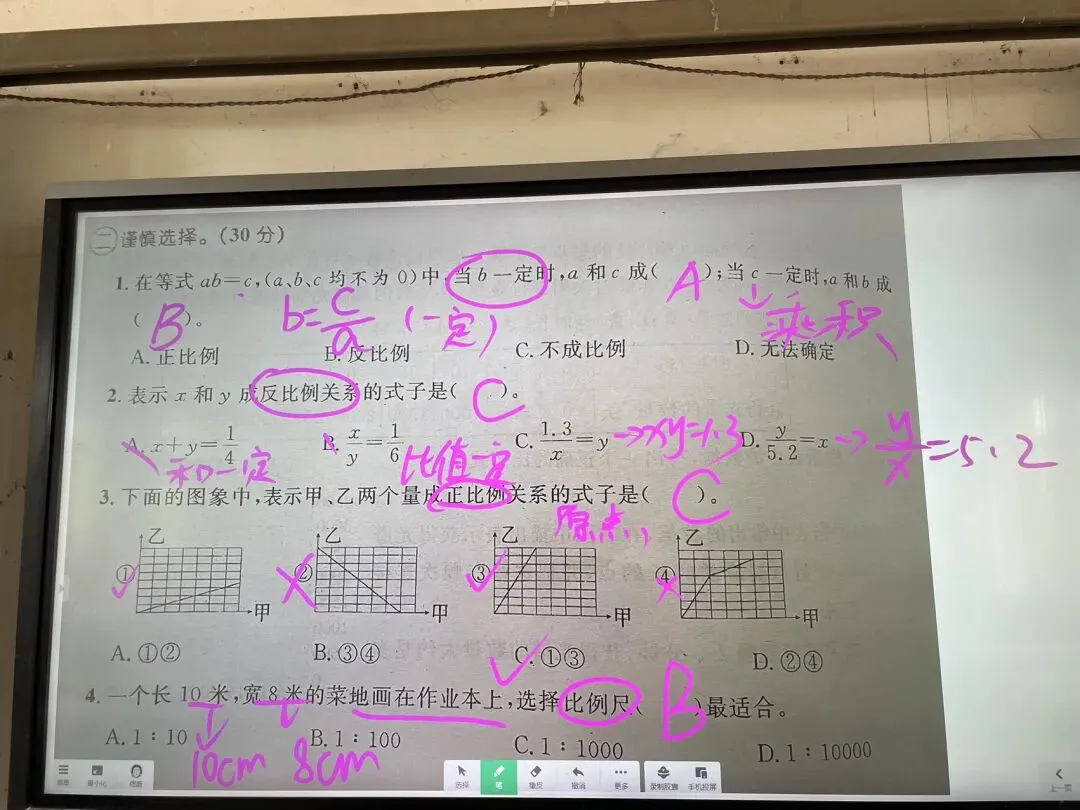 二 谨慎选择。(30 分)
1. 在等式 ab=c,(a、b、c 均不为 0)中,当 b 一定时,a 和 c 成( A );当 c 一定时,a 和 b 成
( B )。 b=c/a (一定) 乘积
A. 正比例 B. 反比例 C. 不成比例 D. 无法确定
2. 表示 x 和 y 成反比例关系的式子是( C )。
A. x+y=1/4 B. x/y=1/6 C. 1.3/x=y →xy=1.3 D. y/5.2=x → y/x=5.2
和一定 比值一定
3. 下面的图象中,表示甲、乙两个量成正比例关系的式子是( C )。
原点,
乙 乙 乙 乙
① ② ③ ④
甲 甲 甲 甲
A. ①② B. ③④ C. ①③ D. ②④
4. 一个长 10 米,宽 8 米的菜地画在作业本上,选择比例尺( B )最适合。
A. 1∶10 B. 1∶100 C. 1∶1000 D. 1∶10000
10cm 8cm
选择 笔 橡皮 撤消 更多 录制胶囊 手机投屏
上一页